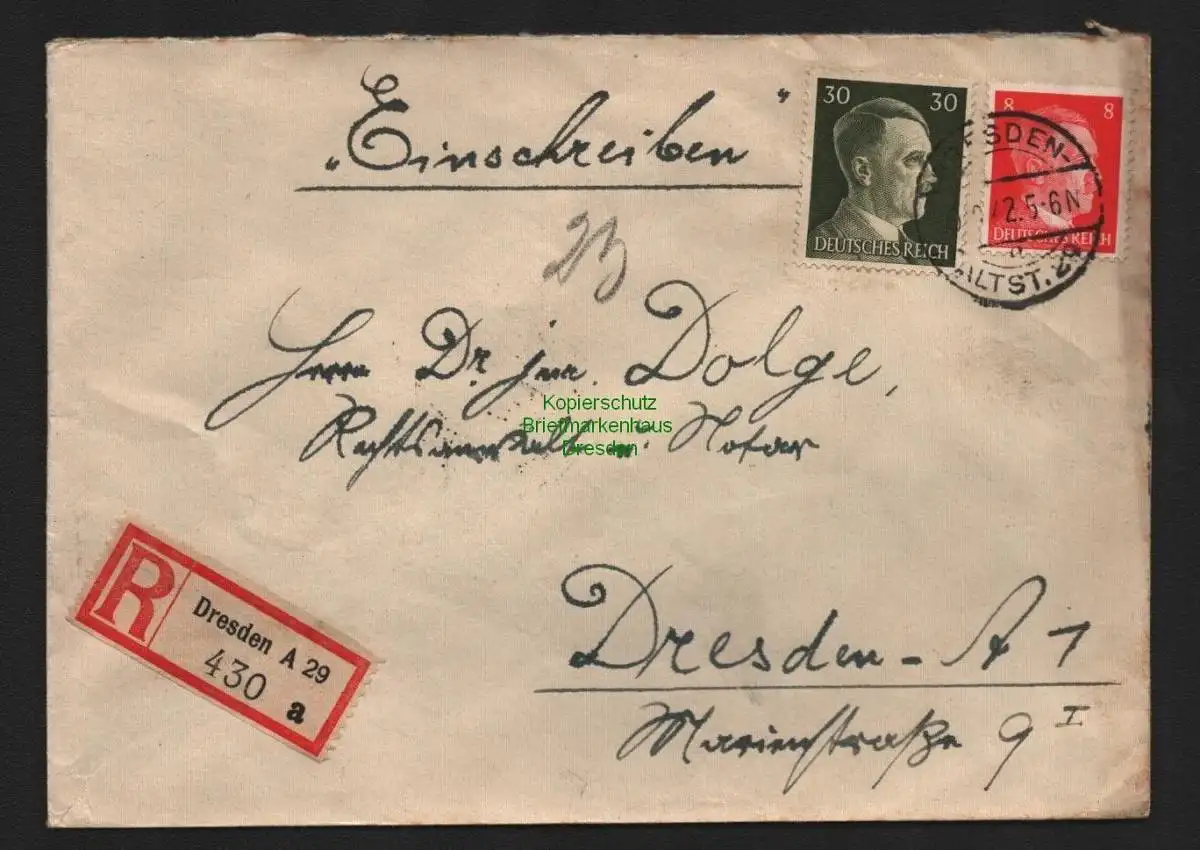 „Einschreiben"
30 30
DEUTSCHES REICH
8 8
DEUTSCHES REICH
DRESDEN-
2.5-6N
a
ALTST. 29
Herrn Dr. jur. Dolge,
Rechtsanwalt u. Notar
Kopierschutz
Briefmarkenhaus
Dresden
R
Dresden A 29
430
a
Dresden-A 1
Marienstraße 9 I